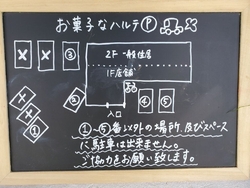 お菓子なハルテ Ⓟ
× × ③
2F 一般住居
1F 店舗
× × ①
入口
④ ⑤
①〜⑤番以外の場所、及びスペース
に駐車は出来ません。
ご協力をお願い致します。